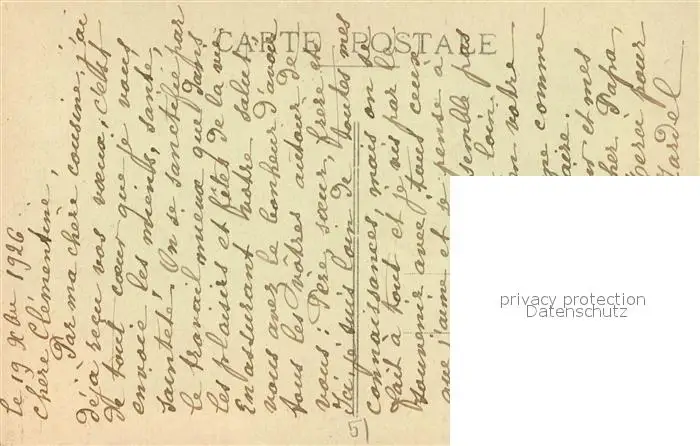 CARTE POSTALE
Le 19 Xbr 1926
Chère Clémentine,
Par ma chère cousine, j'ai
déjà reçu vos vœux, c'est
de tout cœur que je vous
envoie les miens, santé,
sainteté. On se sanctifie par
le travail mieux que dans
les plaisirs et fêtes de la vie
En assurant notre salut.
vous avez le bonheur d'avoir
tous les vôtres autour de
vous: Père, sœur, frère et
Ici je suis loin de toutes mes
connaissances, mais on se
fait à tout et je vis par le
souvenir avec tous ceux
que j'aime et je pense à
semble pas
loin
en votre
comme
aire.
et mes
cher Papa,
pour
privacy protection
Datenschutz